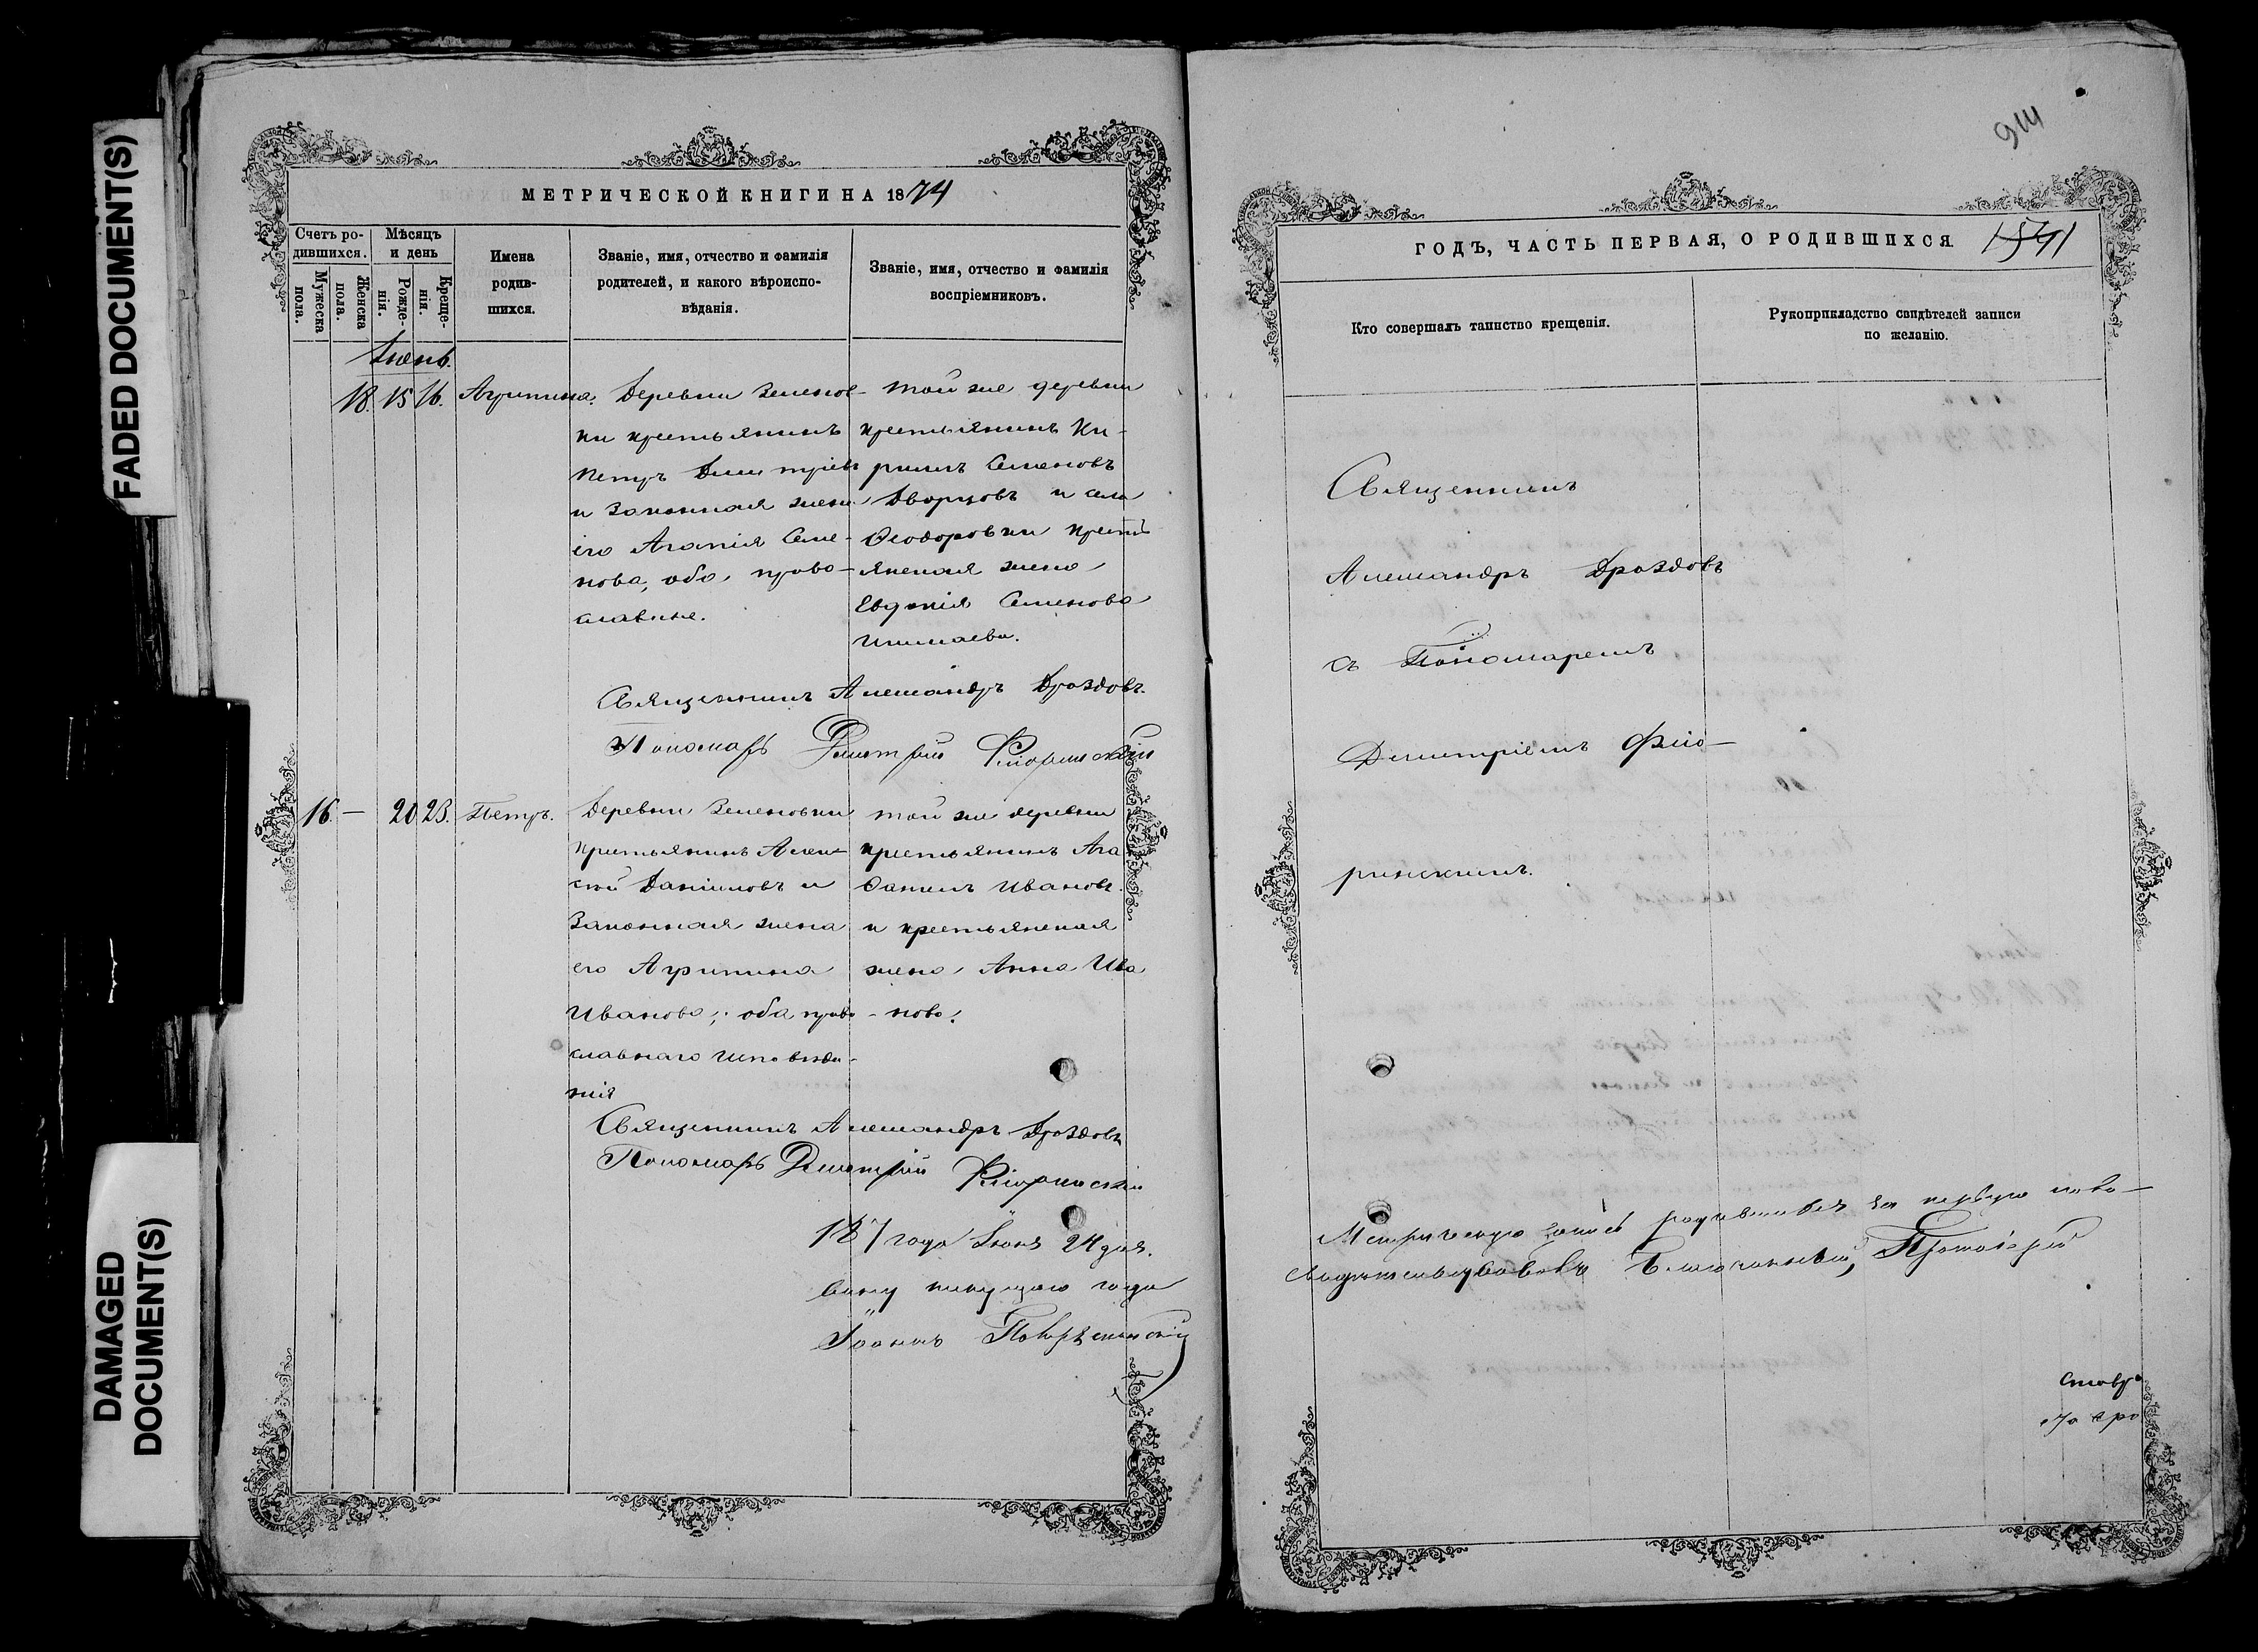 FADED DOCUMENT(S)
DAMAGED
DOCUMENT(S)
МЕТРИЧЕСКОЙ КНИГИ НА 1874
Счетъ ро-
дившихся.
Мужеска
пола.
Женска
пола.
Мѣсяцъ
и день
Рожде-
нія.
Креще-
нія.
Имена
родив-
шихся.
Званіе, имя, отчество и фамилія
родителей, и какого вѣроиспо-
вѣданія.
Званіе, имя, отчество и фамилія
воспріемниковъ.
Іюнь.
18. 15 16. Агрипина.
Деревни Зеленов-
ки крестьянинъ
Петръ Димитріевъ
и законная жена
его Агапія Семе-
нова, оба право-
славные.
той же деревни
крестьянинъ Ки-
риллъ Семеновъ
Дворцовъ и села
Ѳеодоровки кресть
янская жена
Евдокія Семенова
Священникъ Александръ Дроздовъ.
Пономарь Димитрій Флоринскій
16. — 20 23. Петръ.
Деревни Зеленовки
крестьянинъ Алек-
сѣй Даніиловъ и
законная жена
его Агрипина
Иванова; оба право-
славнаго исповѣда-
нія
той же деревни
крестьянинъ Ага
Иванов.
и крестьянская
жена Анна Ива
нова.
Священникъ Александръ Дроздовъ
Пономарь Димитрій Флоринскій
187 года Іюня 24 дня.
вину текущаго года
Іоаннъ
914
ГОДЪ, ЧАСТЬ ПЕРВАЯ, О РОДИВШИХСЯ.
Кто совершалъ таинство крещенія.
Рукоприкладство свидѣтелей записи
по желанію.
Священникъ
Александръ Дроздовъ
съ Пономаремъ
Димитріемъ Фло-
ринскимъ.
Метрическую запись родившихся за первую поло-
свидѣтельствовалъ Благочинный, Протоіерей